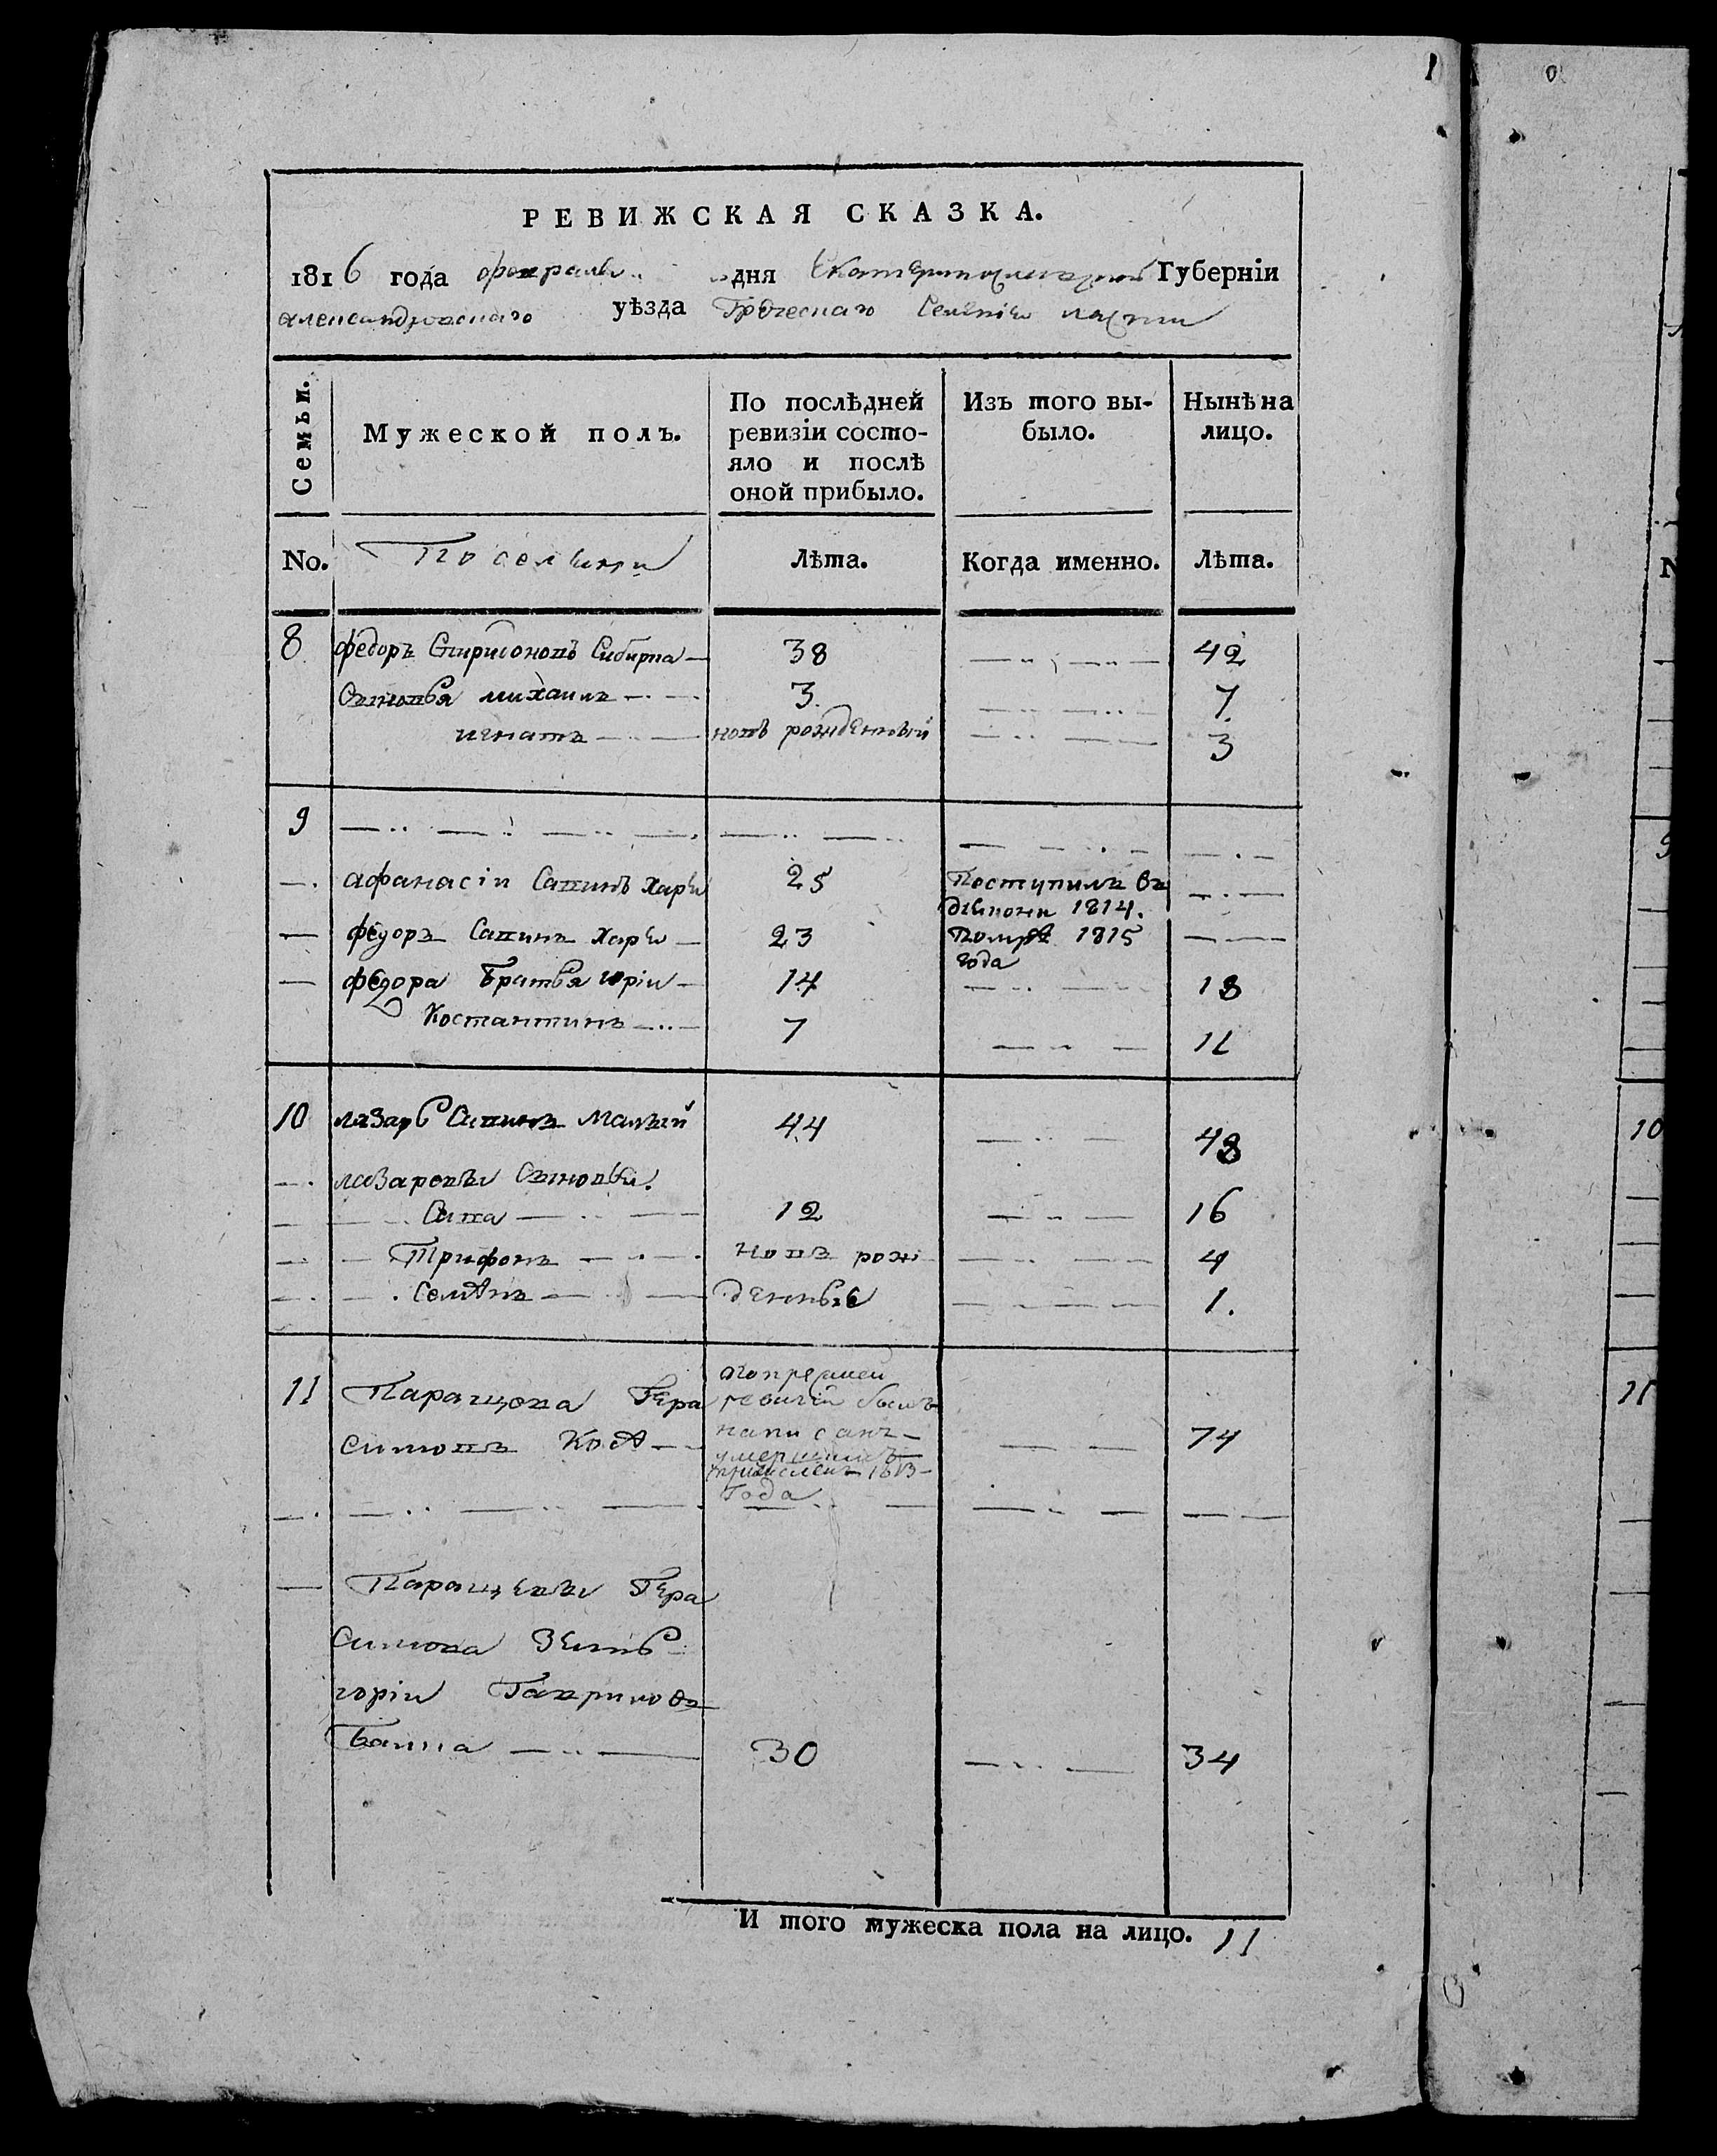 РЕВИЖСКАЯ СКАЗКА.
1816 года февраля дня Екатеринославской Губерніи
Александровскаго уѣзда Греческаго Селенія Ласпи
Семьи. Мужеской полъ. По послѣдней ревизіи состо-яло и послѣ оной прибыло. Изъ того вы-было. Нынѣ на лицо.
No. Поселяни Лѣта. Когда именно. Лѣта.
8 федоръ Спиридоновъ Сибирпа 38 42
Сыновья михаилъ 3. 7.
игнатъ новъ рожденный 3
9
афанасіи Савинъ Хара 25 Поступилъ въ
1814.
федоръ Савинъ Хара 23 Помре 1815
года
федора Братья юріи 14 18
Костантинъ 7 11
10 лазарь Савинъ Малый 44 48
лазаревы Сыновья.
Сава 12 16
Трифонъ новъ рож 4
Семѧнъ денные 1.
11 Паращева Гера
ревизіи былъ
симовъ Коѧ написанъ 74
умершимъ
причисленъ 1813
года
Паращевы Гера
симова Зять
горіи Гавриловъ
Баппа 30 34
И того мужеска пола на лицо. 11
No.
10
11